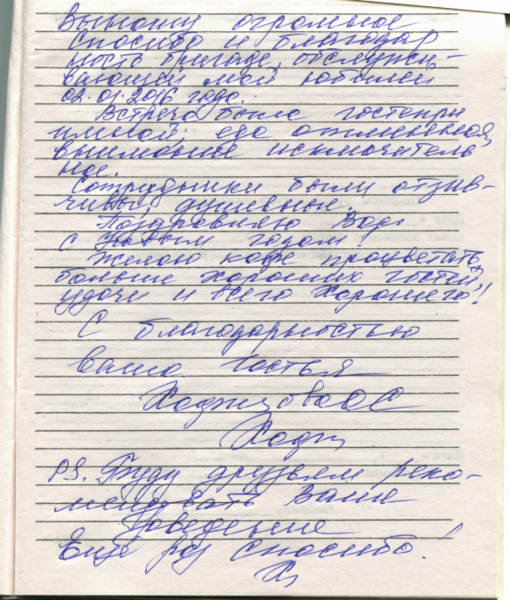 Выношу огромное
спасибо и благодар
ность бригаде, обслужи-
вающей мой юбилей
02.01.2016 года.
Встреча была гостепри
имной, еда отменная,
внимание исключитель
ное.
Сотрудники были отзыв-
чивы, душевные.
Поздравляю Вас
с Новым годом!
Желаю кафе процветать,
больше хороших гостей,
удачи и всего хорошего!
С благодарностью
ваша гостья
P.S. Буду друзьям реко-
мендовать Ваше
Заведение
Ещё раз спасибо!